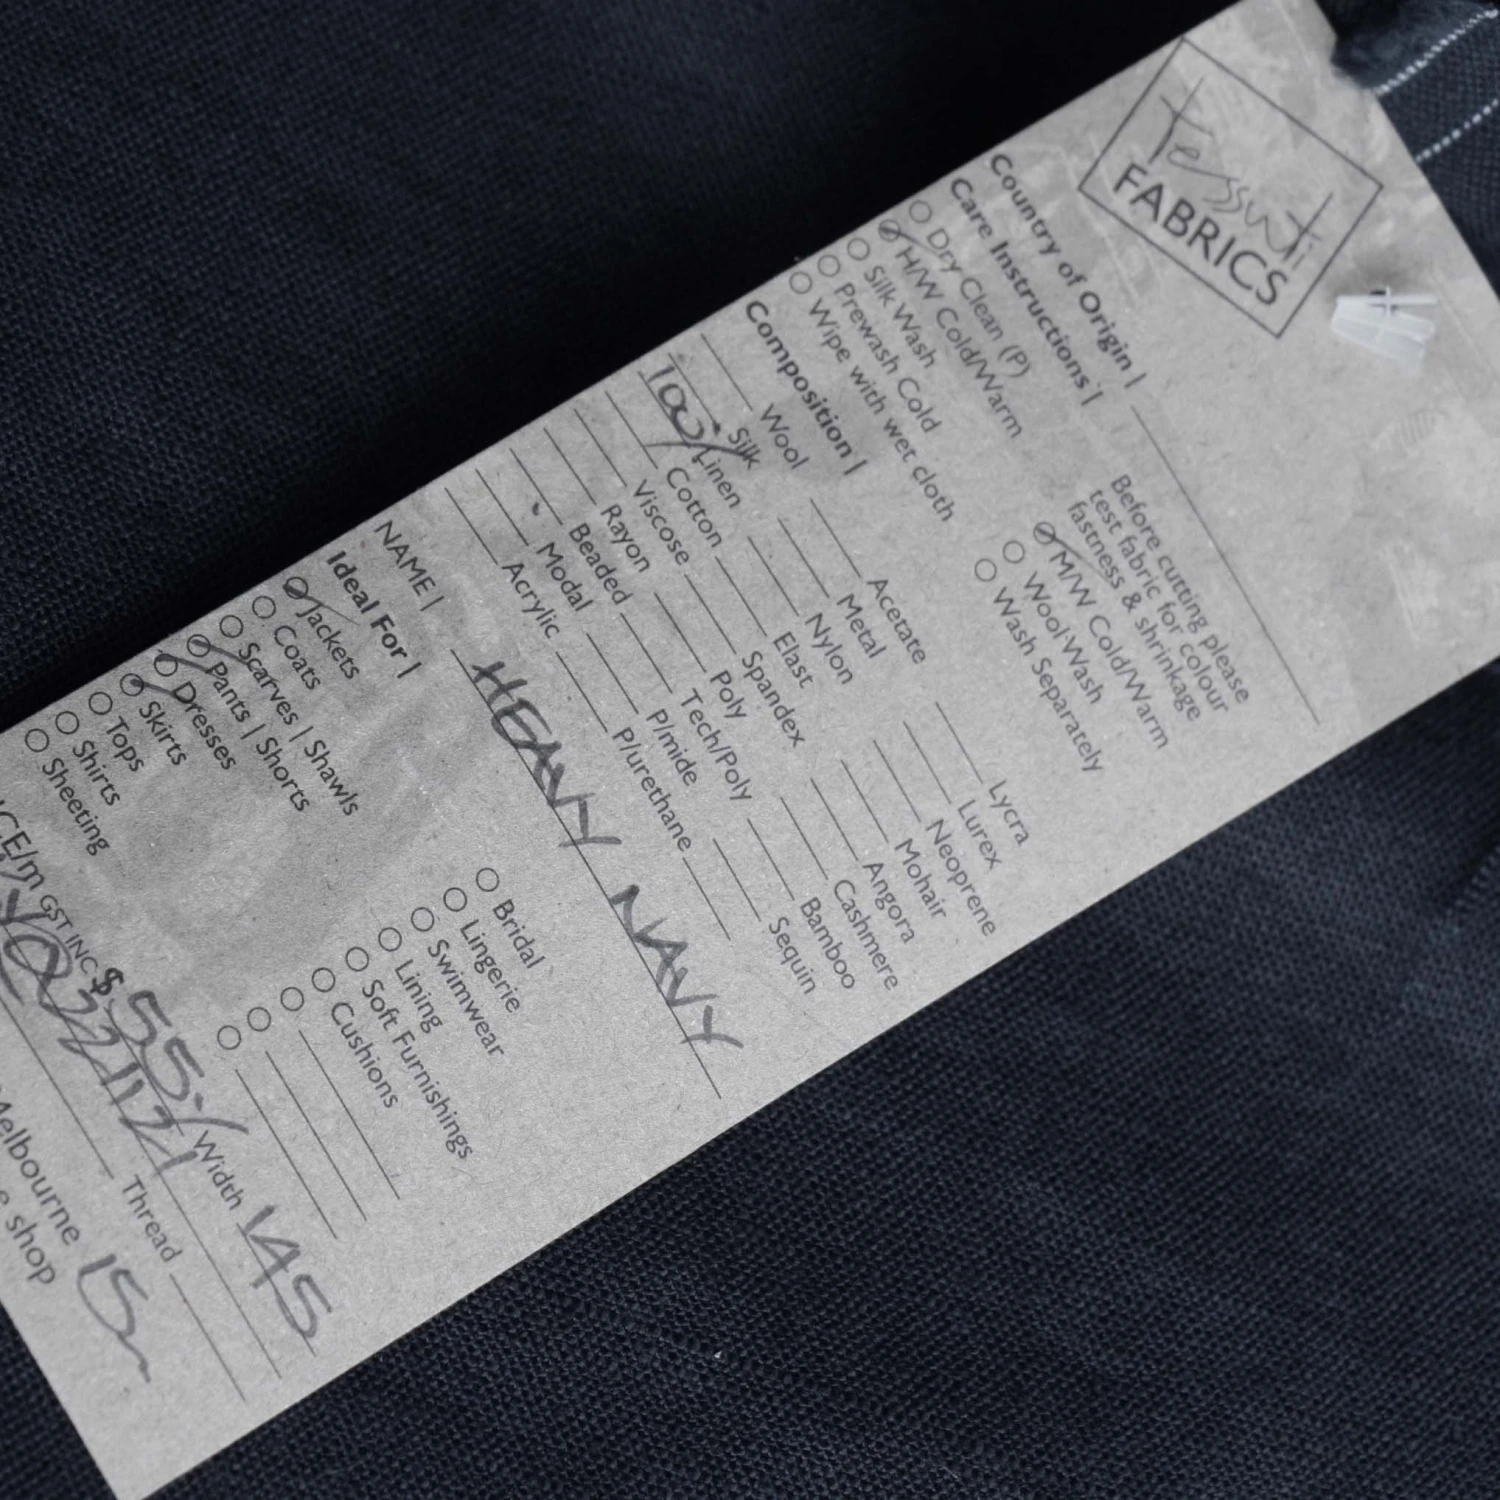 Tessuti
FABRICS
Country of Origin |
Care Instructions |
Before cutting please
test fabric for colour
fastness & shrinkage
Dry Clean (P)
H/W Cold/Warm
Silk Wash
Prewash Cold
Wipe with wet cloth
M/W Cold/Warm
Wool Wash
Wash Separately
Composition |
Wool Acetate Lycra
Silk Metal Lurex
100% Linen Nylon Neoprene
Cotton Elast Mohair
Viscose Spandex Angora
Rayon Poly Cashmere
Beaded Tech/Poly Bamboo
Modal P/mide Sequin
Acrylic P/urethane
NAME | HEAVY NAVY
Ideal For |
Jackets
Coats
Scarves | Shawls
Pants | Shorts
Dresses
Skirts
Tops
Shirts
Sheeting
Bridal
Lingerie
Swimwear
Lining
Soft Furnishings
Cushions
ICE/m GST INC $ 55. Width 145
Thread
Melbourne
shop